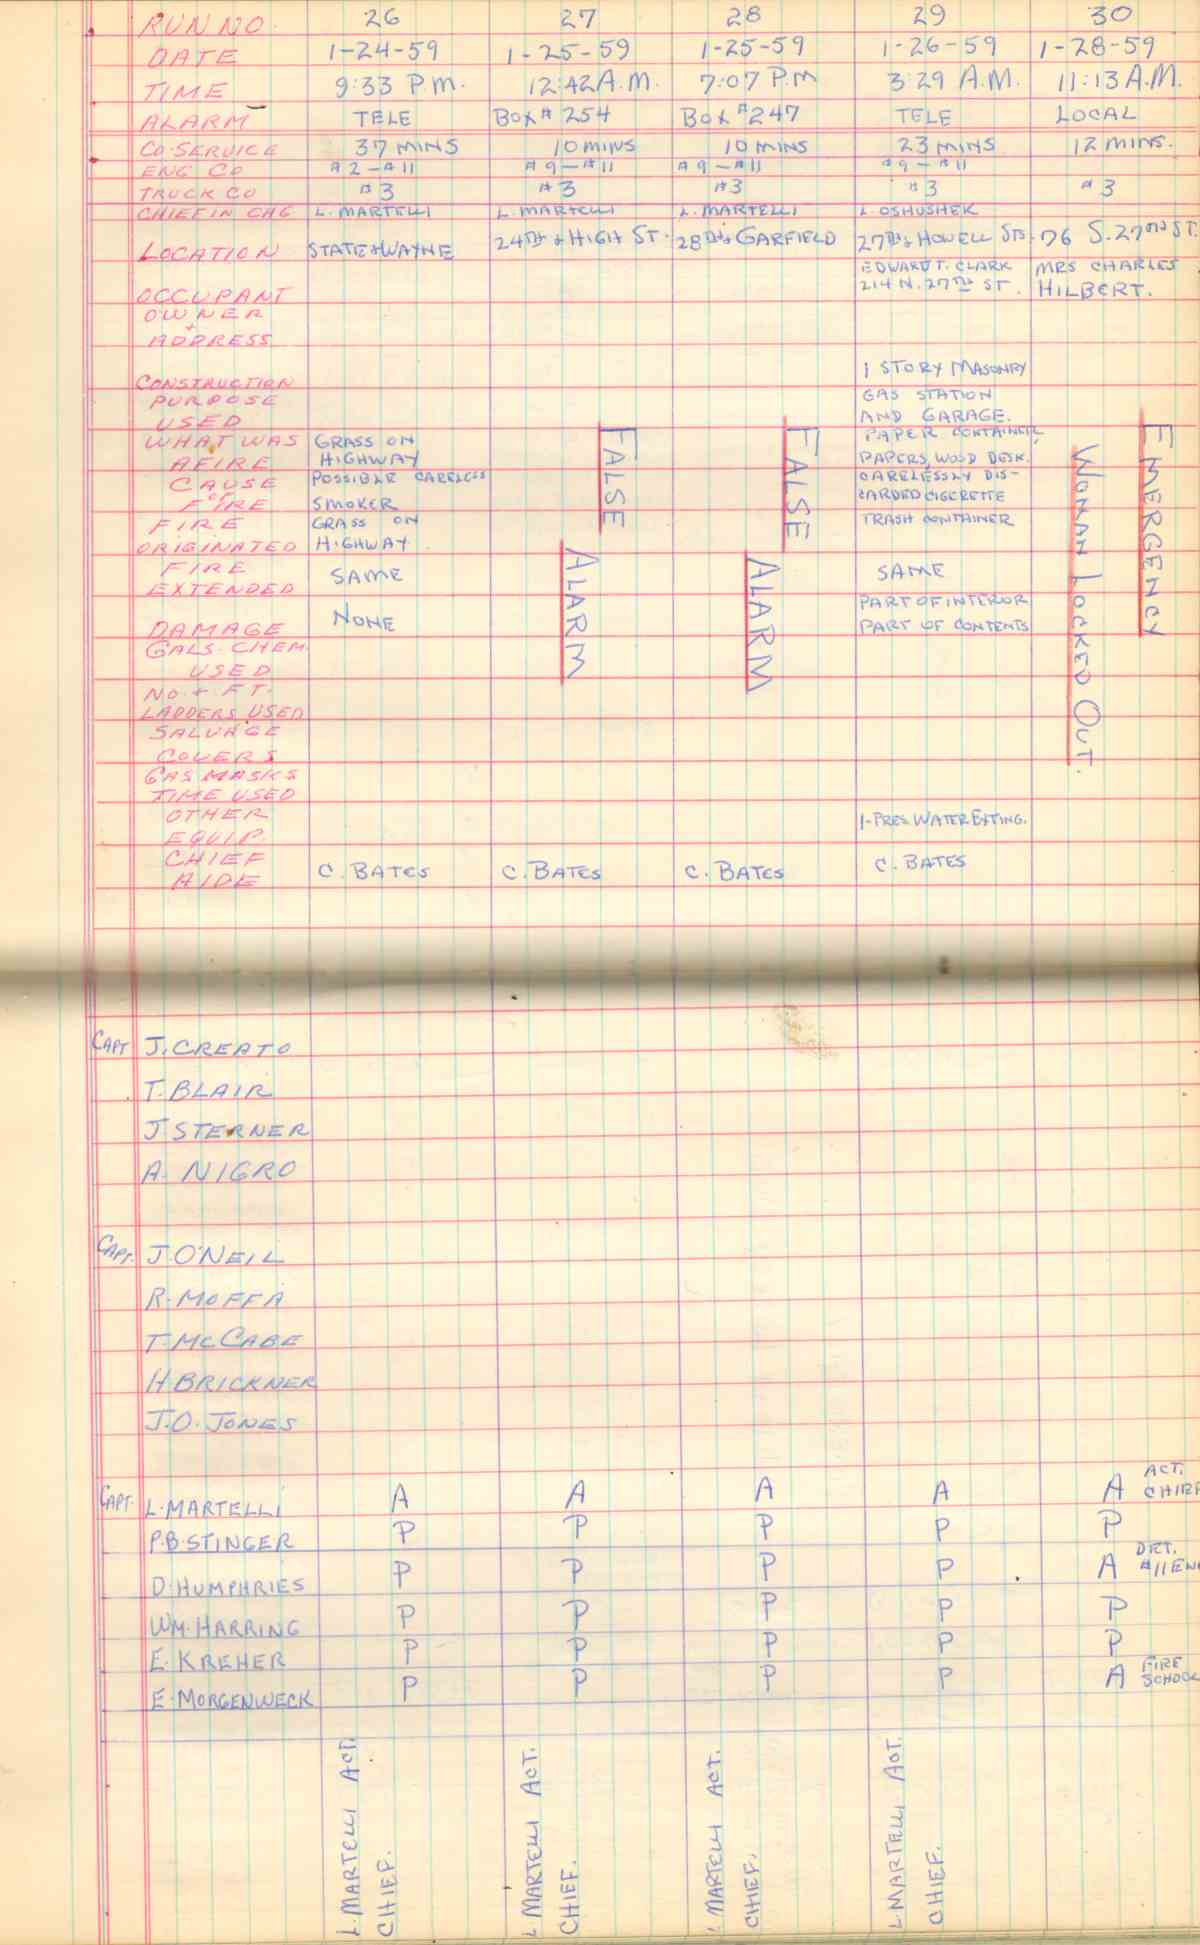 RUN NO. 26 27 28 29 30
DATE 1-24-59 1-25-59 1-25-59 1-26-59 1-28-59
TIME 9:33 P.M. 12:42 A.M. 7:07 P.M 3:29 A.M. 11:13 A.M.
ALARM TELE BOX # 254 BOX #247 TELE LOCAL
CO. SERVICE 37 MINS 10 MINS 10 MINS 23 MINS 12 MINS.
ENG CO #2-#11 #9-#11 #9-#11 #9-#11
TRUCK CO #3 #3 #3 #3 #3
CHIEF IN CHG L. MARTELLI L. MARTELLI L. MARTELLI L. OSHUSHEK
LOCATION STATE + WAYNE 24TH + HIGH ST. 28TH + GARFIELD 27TH + HOWELL STS. 76 S. 27TH ST.
EDWARD T. CLARK MRS CHARLES
OCCUPANT 214 N. 27TH ST. HILBERT.
OWNER
+
ADDRESS
1 STORY MASONRY
CONSTRUCTION
PURPOSE GAS STATION
USED AND GARAGE.
WHAT WAS GRASS ON PAPER CONTAINER,
AFIRE HIGHWAY PAPERS, WOOD DESK.
CAUSE POSSIBLE CARELESS CARELESSLY DIS-
OF
FIRE SMOKER CARDED CIGERETTE
FIRE GRASS ON TRASH CONTAINER
ORIGINATED HIGHWAY.
FIRE SAME SAME
EXTENDED
NONE PART OF INTERIOR
DAMAGE PART OF CONTENTS
FALSE
ALARM
FALSE
ALARM
EMERGENCY
WOMAN LOCKED OUT.
GALS. CHEM.
USED
NO. + FT.
LADDERS USED
SALVAGE
COVERS
GAS MASKS
TIME USED
OTHER 1-PRES. WATER EXTING.
EQUIP.
CHIEF
AIDE C. BATES C. BATES C. BATES C. BATES
CAPT J. CREATO
T. BLAIR
J STERNER
A. NIGRO
CAPT. J. O'NEIL
R. MOFFA
T. MCCABE
H BRICKNER
J. O. JONES
CAPT. L. MARTELLI A A A A A ACT. CHIEF
P.B. STINGER P P P P P
D. HUMPHRIES P P P P A DET. #11 ENG
WM. HARRING P P P P P
E. KREHER P P P P P
E. MORGENWECK P P P P A FIRE SCHOOL
L. MARTELLI ACT.
CHIEF.
L MARTELLI ACT.
CHIEF.
L MARTELLI ACT.
CHIEF.
L. MARTELLI ACT.
CHIEF.